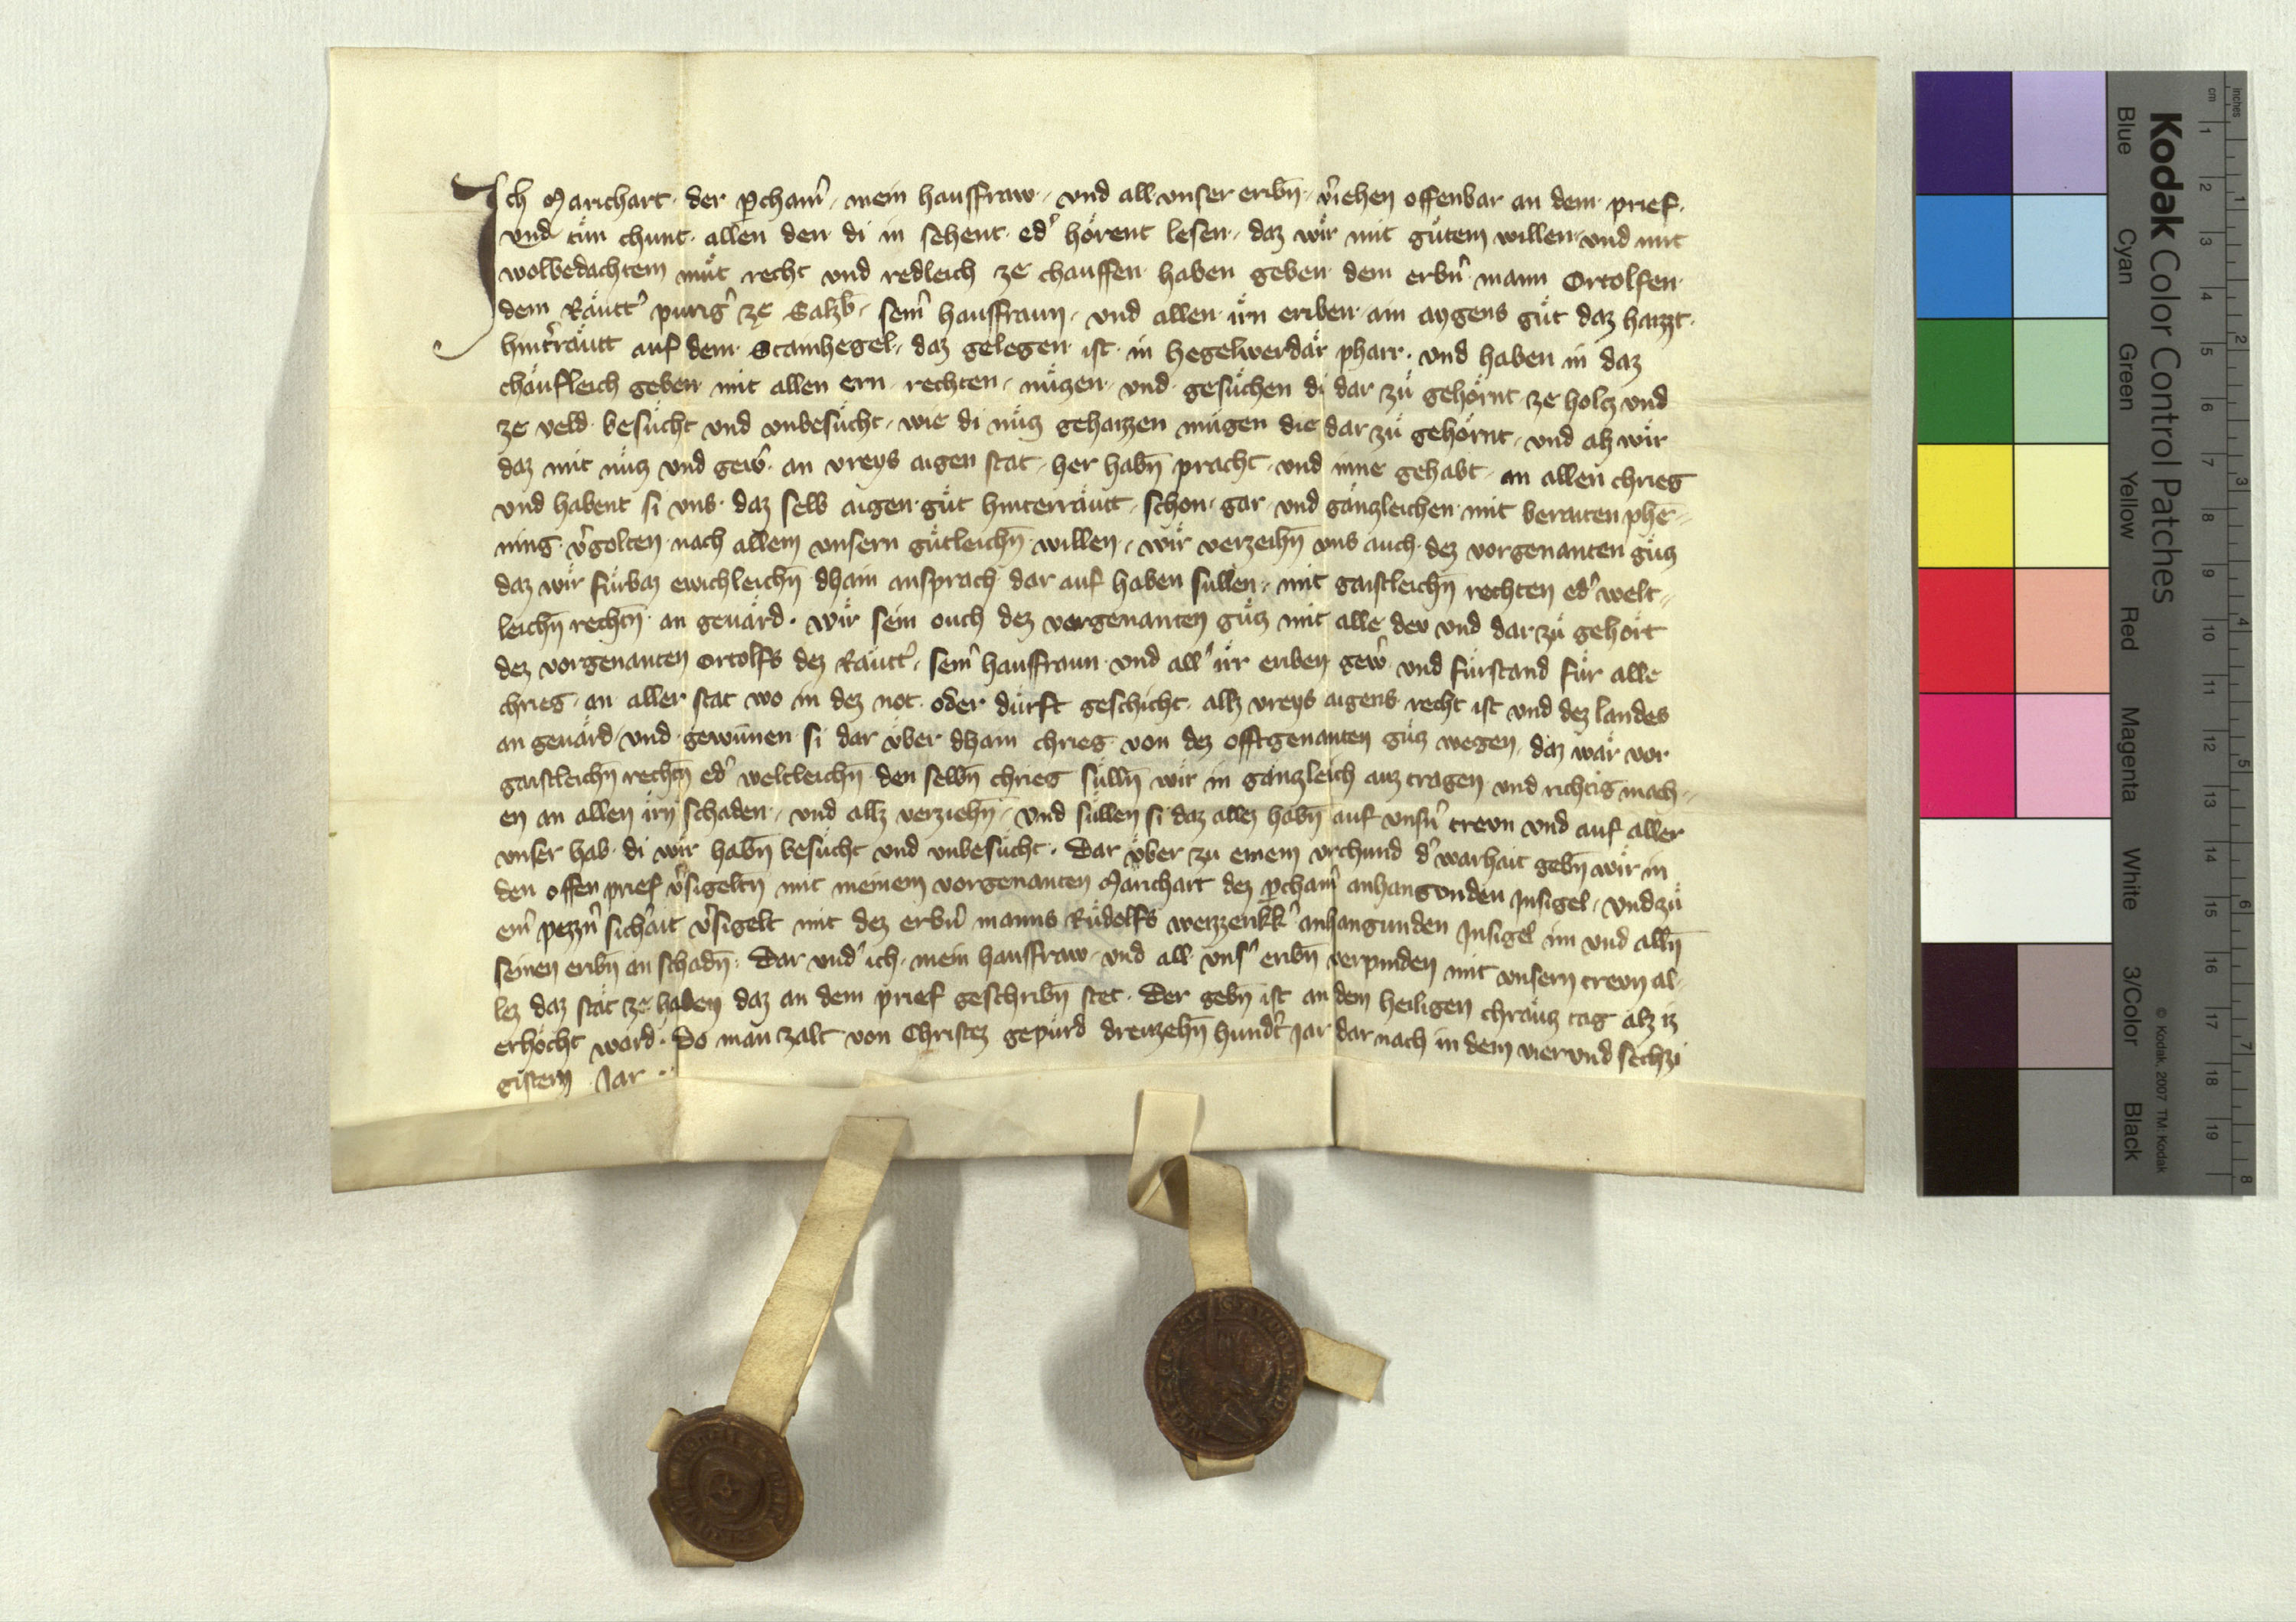 Ich Marichart der pchaim̄ mein hausfraw und all unser eribn̄ v̓iehen offenbar an dem prief
und tuͤn chunt allen den di in sehent ed̓ hoͤrent lesen daz wir mit guͤtem willen und mit
wolbedachtem muͤt recht und redleich ze chauffen haben geben dem erbn̓ mann Ortolfen
dem Raͤutt̓ purig̓ ze Salzb̄ sein̓ hausfraun und allen irn eriben ain aygens guͤt daz haizzt
hint̓raͤutt auf dem Stainhegel daz gelegen ist in hegelwerdaͤr pharr und haben in daz
chaͤufleich geben mit allen ern rechten nuͤtzen und gesuͤchen di dar zuͤ gehoͤrnt ze holtz und
ze veld besuͤcht und unbesuͤcht wie di nuͤtz gehaizzen muͤgen die dar zuͤ gehoͤrnt und alz wir
daz mit nuͤtz und gew̓ an vreys aigen stat her habn̄ pracht und inne gehabt an allen chrieg
und habent si uns daz selb aigen guͤt hinterraͤutt schon gar und gaͤnzleichen mit beraiten phe-
ning v̓golten nach allem unserm guͤtleichn̄ willen wir verzeihn̄ uns auch dez vorgenanten guͤtz
daz wir fuͤrbaz ewichleichn̄ dhain ansprach dar auf haben suͤllen mit gaistleichn̄ rechten ed̓ welt-
leichn̄ rechtn̄ an geuaͤrd wir sein ouch dez vorgenanten guͤtz mit alle dev und dar zuͤ gehoͤrt
dez vorgenanten Ortolfs dez Raͤutt̓ sein̓ hausfraun und all̓ ir eriben gew̓ und fuͤrstand fuͤr alle
chrieg an aller stat wo in dez not oder duͤrft geschicht allz vreys aigens recht ist und dez landes
an geuaͤrd und gewunnen si dar uͤber dhain chrieg von dez offtgenanten guͤtz wegen daz waͤr vor
gaistleichn̄ rechtn̄ ed̓ weltleichn̄ den selbn̄ chrieg suͤlln̄ wir in gaͤnzleich auz tragen und richtig mach-
en an allen irn schaden und allz verziehn̄ und suͤllen si daz allez habn̄ auf unsn̓ trevn und auf aller
unser hab di wir habn̄ besuͤcht und unbesuͤcht Dar uͤber zu einem urchund d̓ warhait gebn̄ wir in
den offen prief v̓sigeltn̄ mit meinem vorgenanten Marichart dez pchaim̄ anhangunden Insigel und zuͤ
ein̓ pezzn̓ sich̓ait v̓sigelt mit dez erbn̓ manns Ruͤdolfs weizzenkk̓ anhangunden Insigel im und alln̄
seinen eribn̄ an schadn̄ Dar und̓ ich mein hausfraw und all uns̓ eribn̄ verpinden mit unsern trevn al-
lez daz staͤt ze haben daz an dem prief geschribn̄ stet Der gebn̄ ist an dem heiligen chraͤutz tag alz iz
erhoͤcht ward Do man zalt von Christez gepuͤrd dreuzehn̄ hundt̓ Jar dar nach in dem vier und sechzi
gistem Jar
Kodak Color Control Patches
Blue Cyan Green Yellow Red Magenta White 3/Color Black
© Kodak, 2007 TM: Kodak
cm 1 2 3 4 5 6 7 8 9 10 11 12 13 14 15 16 17 18 19
inches 1 2 3 4 5 6 7 8